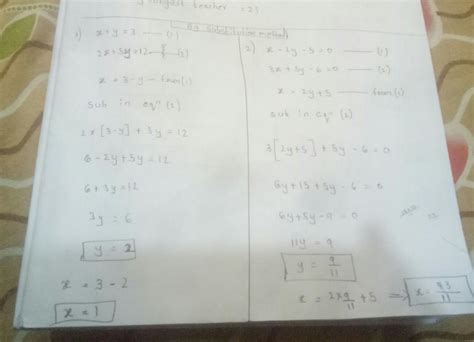 youngest teacher = 25
By Substitution method
1) x + y = 3 —— (1)
2x + 3y = 12 —— (2)
x = 3 - y — from (1)
sub in eqn (2)
2x [3-y] + 3y = 12
6 - 2y + 5y = 12
6 + 3y = 12
3y = 6
y = 2
x = 3 - 2
x = 1
2) x - 2y - 5 = 0 —— (1)
3x + 5y - 6 = 0 —— (2)
x = 2y + 5 — from (1)
sub in eqn (2)
3[2y+5] + 5y - 6 = 0
6y + 15 + 5y - 6 = 0
6y + 5y - 9 = 0
11y = 9
y = 9/11
x = 2x9/11 + 5 => x = 73/11